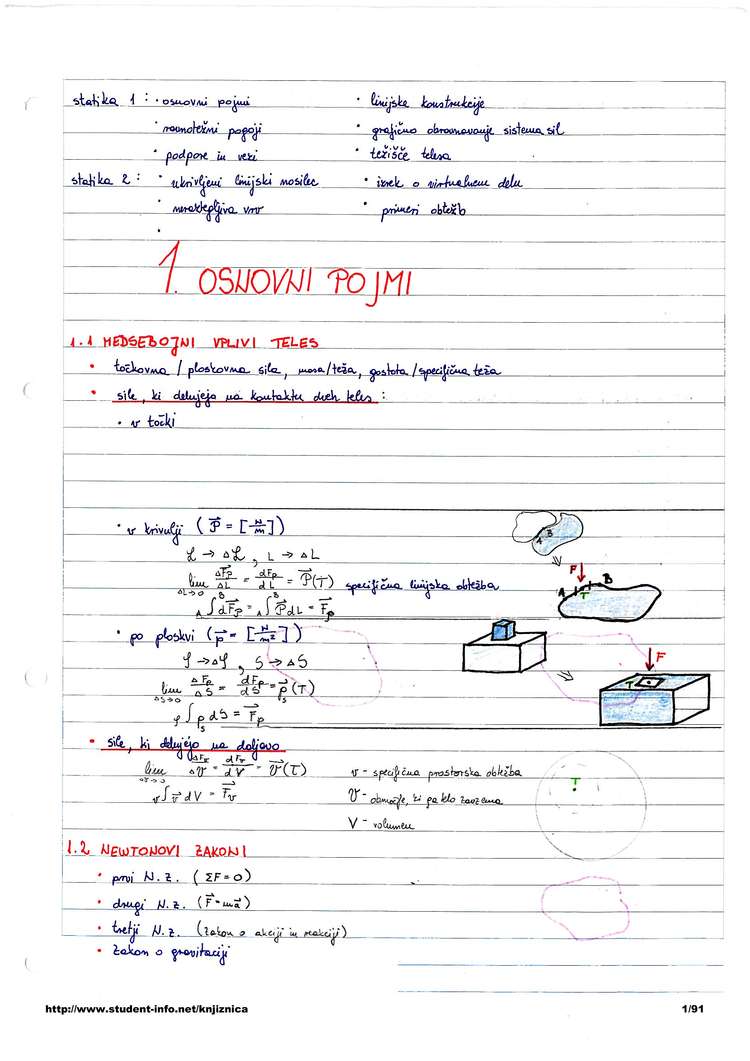 statika 1 : • osnovni pojmi
• ravnotežni pogoji
• podpore in vezi
• linijske konstrukcije
• grafično obravnavanje sistema sil
• težišče telesa
statika 2 : • ukrivljeni linijski nosilec
• neraztegljiva vrv
• izrek o virtualnem delu
• primeri obtežb
•
1. OSNOVNI POJMI
1.1 MEDSEBOJNI VPLIVI TELES
• točkovna / ploskovna sila, masa/teža, gostota/specifična teža
• sile, ki delujejo na kontaktu dveh teles :
• v točki
• v krivulji (P⃗ = [N/m])
ℒ → Δℒ, L → ΔL
lim ΔL→0 ΔF⃗p/ΔL = dF⃗p/dL = P⃗(T) specifična linijska obtežba
A∫B dF⃗p = A∫B P⃗dL = F⃗p
A B
F
A T B
• po ploskvi (p⃗ = [N/m²])
𝒮 → Δ𝒮, S → ΔS
lim ΔS→0 ΔF⃗p/ΔS = dF⃗p/dS = p⃗s(T)
𝒮∫ p⃗s dS = F⃗p
F
T
• sile, ki delujejo na daljavo
lim ΔV→0 ΔF⃗v/ΔV = dF⃗v/dV = v⃗(T)
𝒱∫ v⃗ dV = F⃗v
v - specifična prostorska obtežba
𝒱 - območje, ki ga telo zavzema
V - volumen
T
1.2 NEWTONOVI ZAKONI
• prvi N.z. (ΣF=0)
• drugi N.z. (F⃗=ma⃗)
• tretji N.z. (zakon o akciji in reakciji)
• zakon o gravitaciji
http://www.student-info.net/knjiznica
1/91